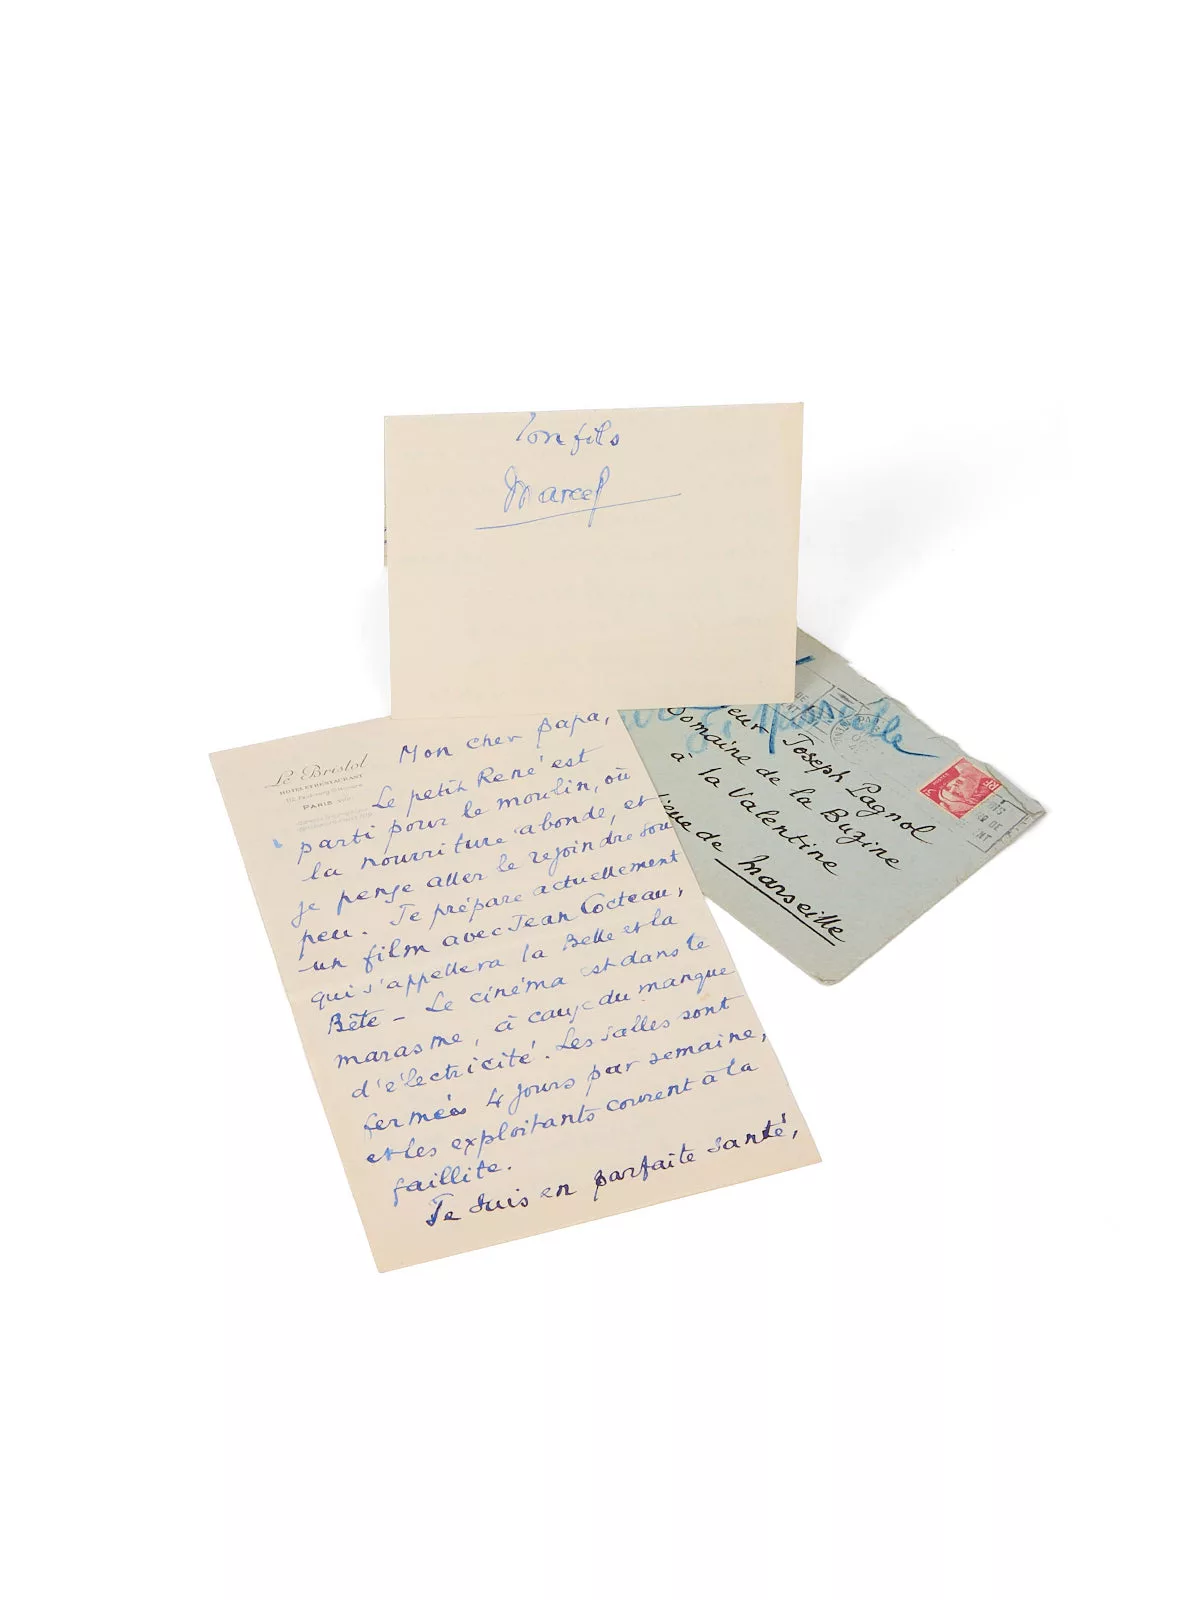 Ton fils
Marcel
Le Bristol
HOTEL ET RESTAURANT
PARIS
Mon cher papa,
Le petit René est
parti pour le moulin, où
la nourriture abonde, et
je pense aller le rejoindre sous
peu. Je prépare actuellement
un film avec Jean Cocteau,
qui s'appellera la Belle et la
Bête – Le cinéma est dans le
marasme, à cause du manque
d'électricité. Les salles sont
fermées 4 jours par semaine,
et les exploitants courent à la
faillite.
Je suis en parfaite santé,
Joseph Pagnol
Domaine de la Buzine
à la Valentine
de Marseille